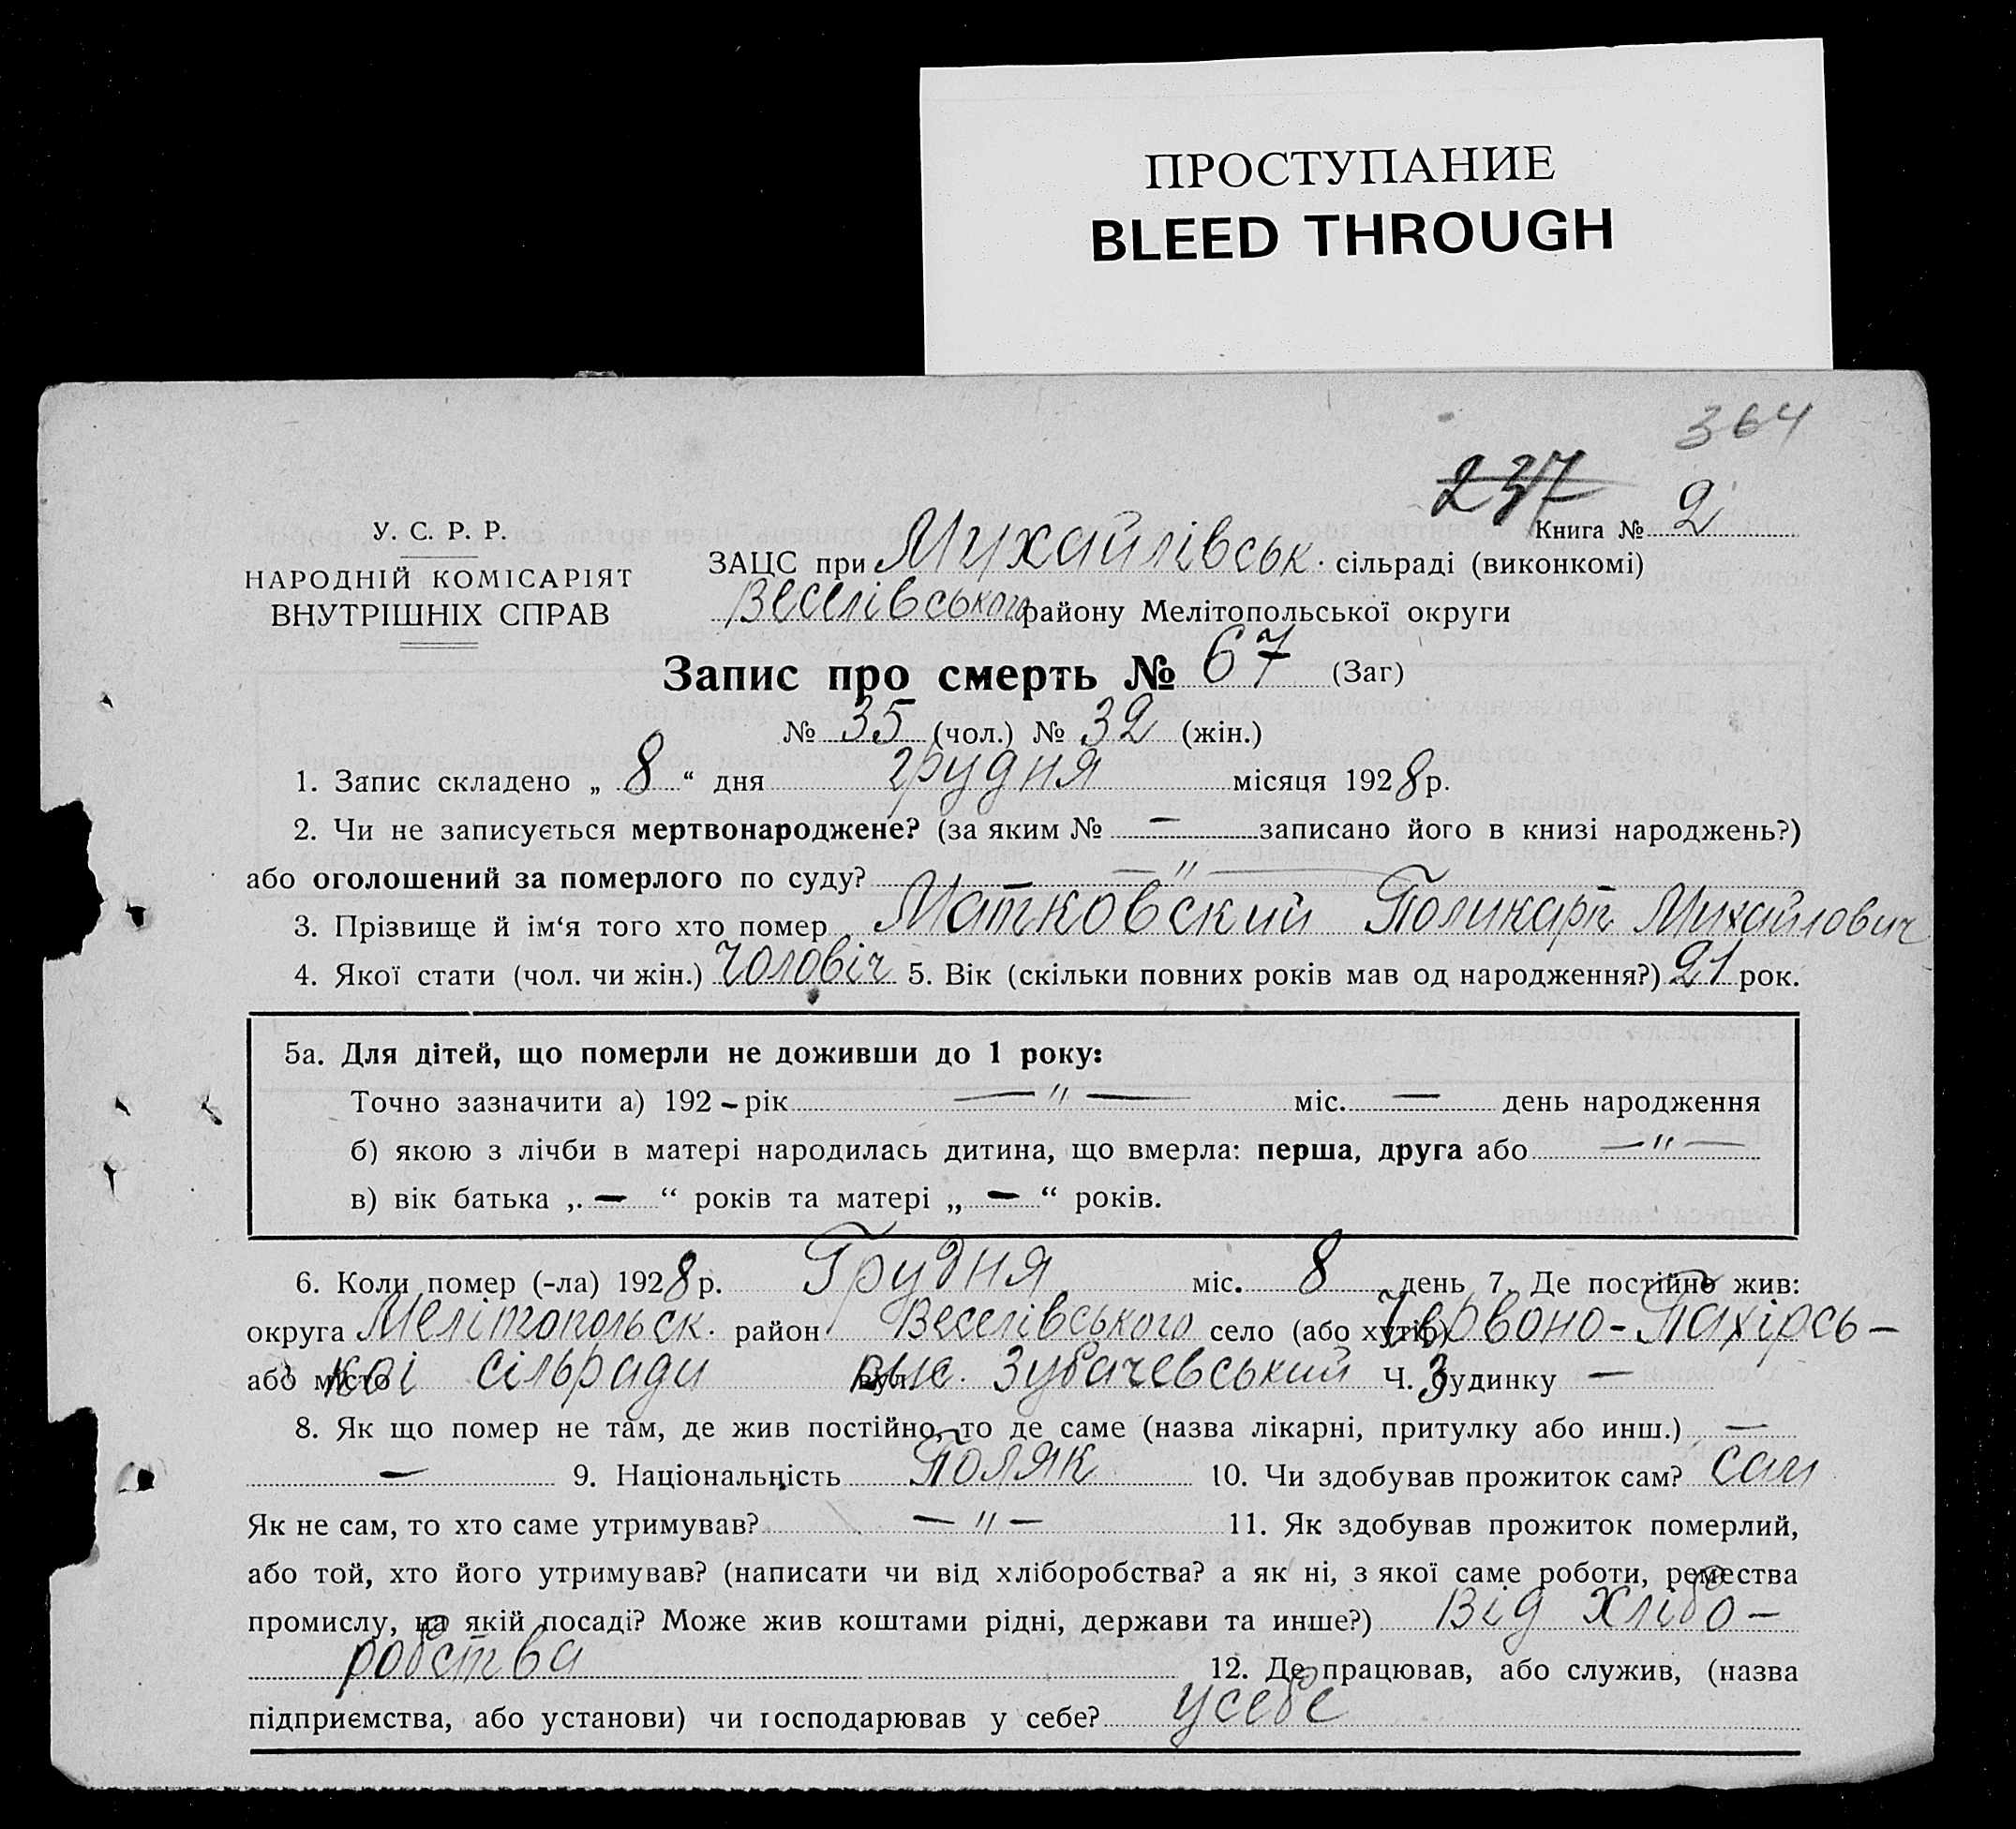 ПРОСТУПАНИЕ
BLEED THROUGH
364
237
Книга № 2
У. С. Р. Р.
НАРОДНІЙ КОМІСАРІЯТ
ВНУТРІШНІХ СПРАВ
ЗАЦС при Михайлівськ. сільраді (виконкомі)
Веселівського району Мелітопольської округи
Запис про смерть № 67 (Заг)
№ 35 (чол.) № 32 (жін.)
1. Запис складено „ 8 “ дня грудня місяця 1928 р.
2. Чи не записується мертвонароджене? (за яким № — записано його в книзі народжень?)
або оголошений за померлого по суду? — " —
3. Прізвище й ім‘я того хто помер Матковский Поликарп Михайлович
4. Якої стати (чол. чи жін.) Чоловіч 5. Вік (скільки повних років мав од народження?) 21 рок.
5а. Для дітей, що померли не доживши до 1 року:
Точно зазначити а) 192 - рік — " — міс. — день народження
б) якою з лічби в матері народилась дитина, що вмерла: перша, друга або — " —
в) вік батька „ — “ років та матері „ — “ років.
6. Коли помер (-ла) 1928 р. Грудня міс. 8 день 7. Де постійно жив:
округа Мелітопольск. район Веселівського село (або хутір) Червоно-Пахірсь-
або місто кої сільради вул. Зубачевський Ч. 3 будинку —
8. Як що помер не там, де жив постійно, то де саме (назва лікарні, притулку або инш.) —
— 9. Національність Поляк 10. Чи здобував прожиток сам? сам
Як не сам, то хто саме утримував? — " — 11. Як здобував прожиток померлий,
або той, хто його утримував? (написати чи від хліборобства? а як ні, з якої саме роботи, ремества
промислу, на якій посаді? Може жив коштами рідні, держави та инше?) Від хлібо-
робства 12. Де працював, або служив, (назва
підприємства, або установи) чи господарював у себе? усебе